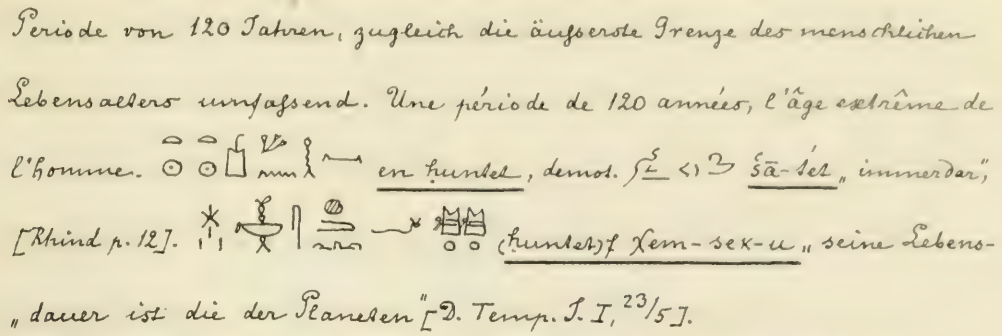 Periode von 120 Jahren, zugleich die äußerste Grenze des menschlichen
Lebensalters umfassend. Une période de 120 années, l'âge extrême de
l'homme. en ḥuntet, demot. śā-tet „immerdar",
[Rhind p. 12]. (ḥuntet)f χem-seκ-u „seine Lebens-
„dauer ist die der Planeten" [D. Temp. J. I, 23/5].